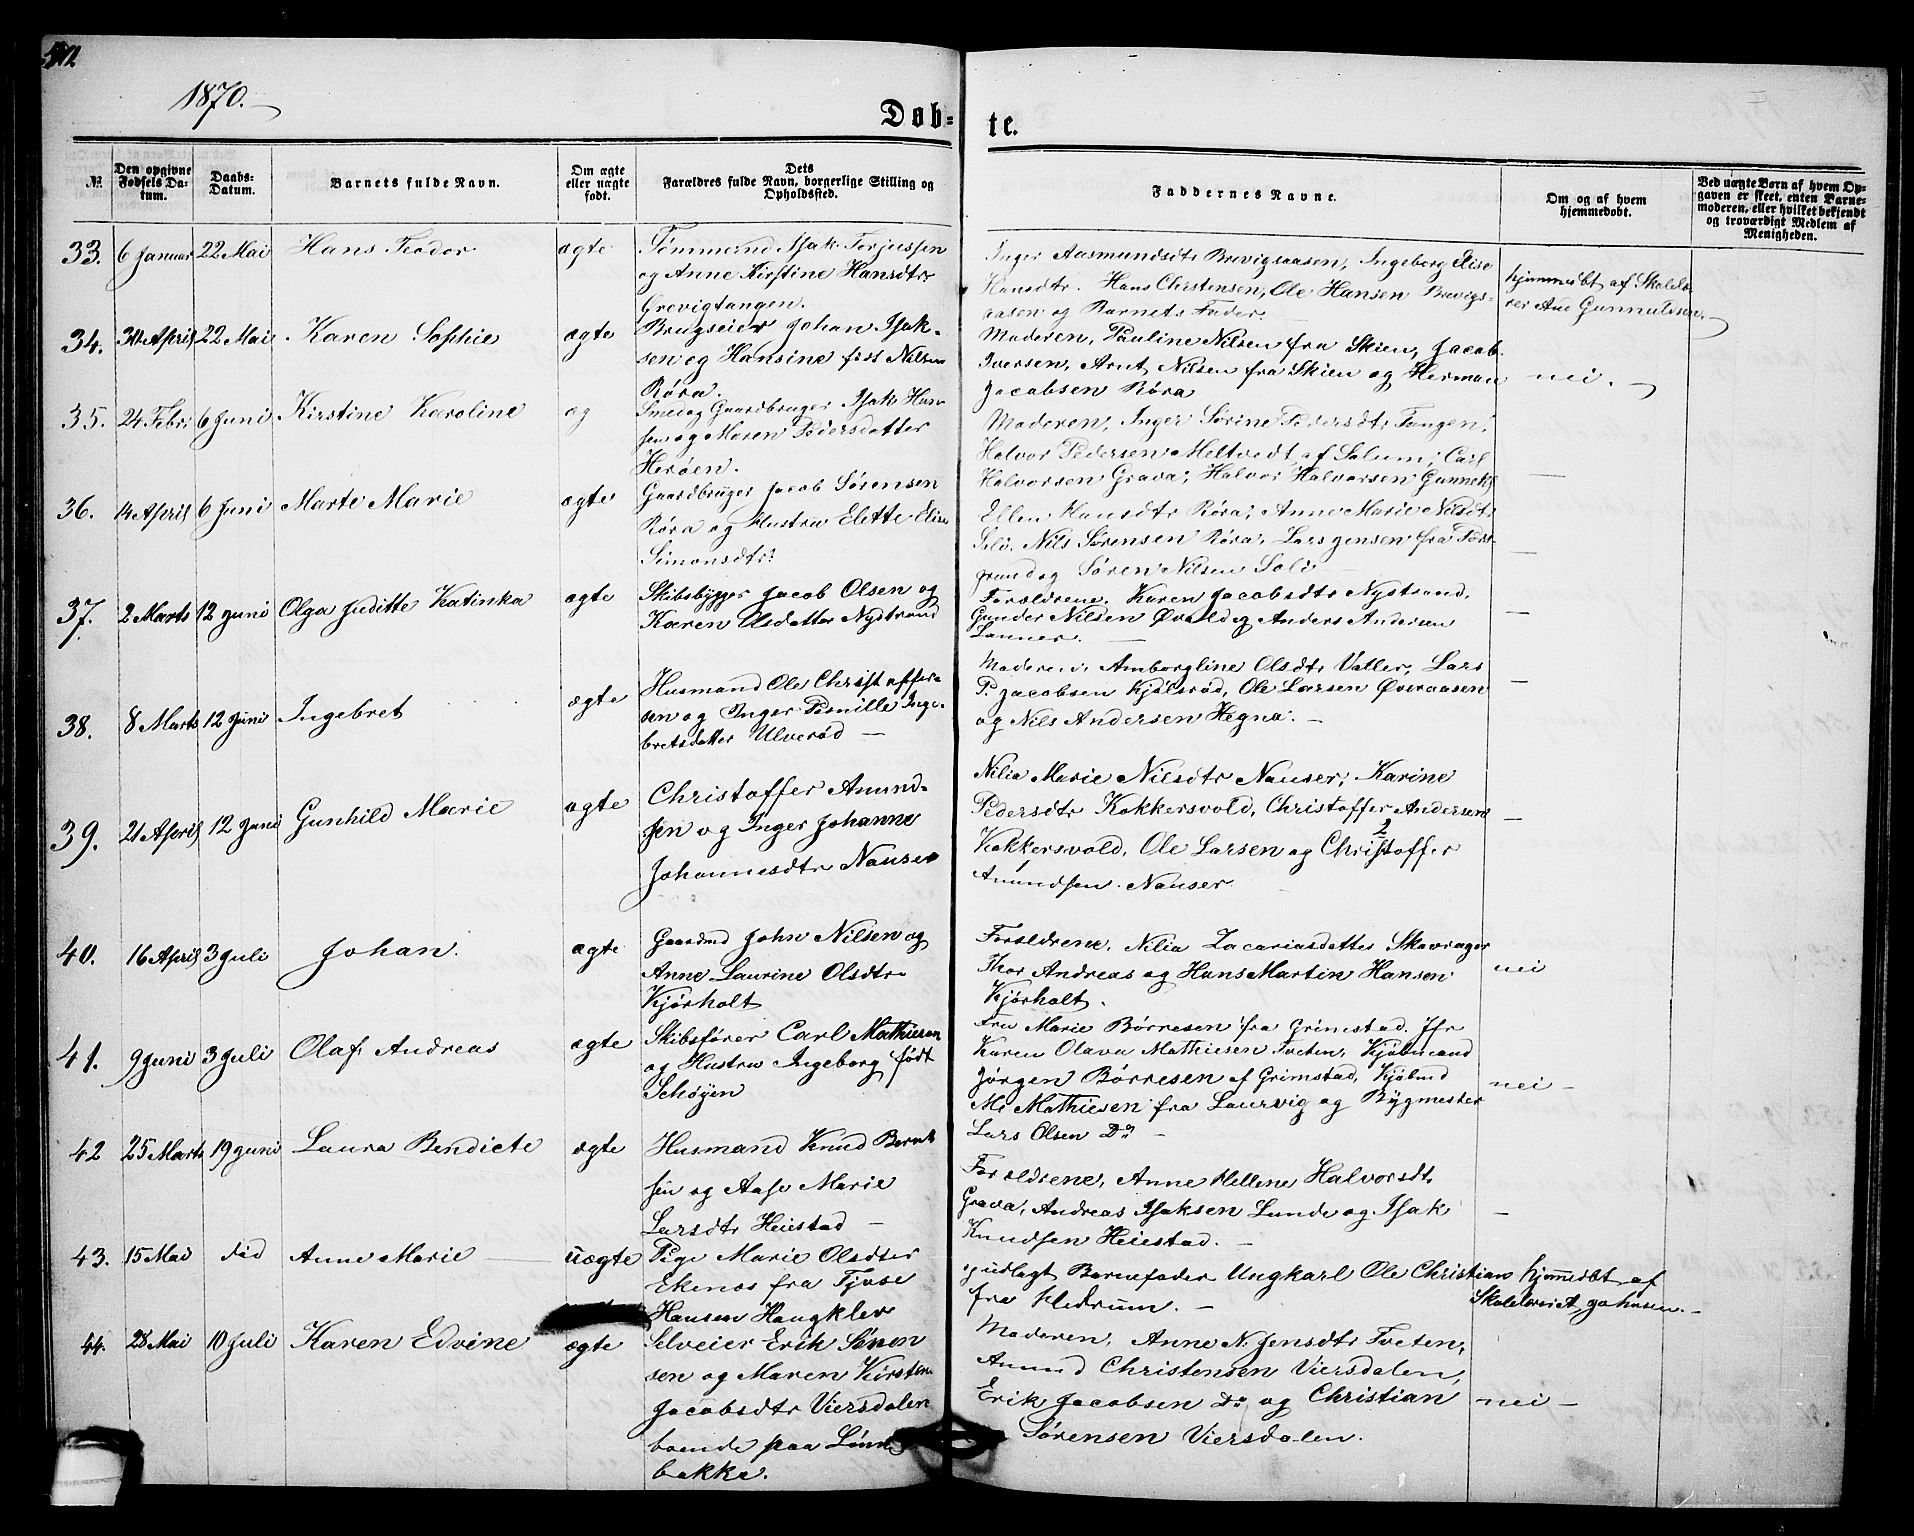 1870.
Døb-
te.
№
Den opgivne Fødsels Da-tum.
Daabs-Datum.
Barnets fulde Navn.
Om ægte eller uægte født.
Dets Forældres fulde Navn, borgerlige Stilling og Opholdssted.
Faddernes Navne.
Om og af hvem hjemmedøbt.
Ved uægte Børn af hvem Op-gaven er skeet, enten Barne-moderen, eller hvilket bekjendt og troværdigt Medlem af Menigheden.
33. 6 Januar 22 Mai Hans Teodor ægte
Tømmermd Isak Torjussen
og Anne Kirstine Hansdtr
Grevigtangen.
Inger Aasmundsdtr Brevigaasen, Ingeborg Elise
Hansdtr. Hans Christensen, Ole Hansen Brevigs-
aasen og Barnets Fader.
hjemmedbt af Skolelæ-
rer Ane Gunnuldsen.
34. 30 April 22 Mai Karen Sophie ægte
Brugseier Johan Isak-
sen og Hansine født Nilsen
Røra.
Moderen, Pauline Nilsen fra Skien, Jacob
Iversen, Arnt Nilsen fra Skien og Herman
Jacobsen Røra
nei.
35. 24 Febr 6 Juni Kirstine Karoline æg
Smed og Gaardbruger Isak Han-
sen og Maren Pedersdatter
Herøen.
Moderen, Inger Sørine Pedersdtr Tangen,
Halvor Pedersen Meltvedt af Solum; Carl
Halvorsen Grava; Halvor Halvorsen Gunnekl.
36. 14 April 6 Juni Marte Marie ægte
Gaardbruger Jacob Sørensen
Røra og Hustru Elette Elise
Simonsdtr
Ellen Hansdtr Røra; Anne Marie Nilsdtr
Soli, Nils Sørensen Røra, Lars Jensen fra Pors-
grund og Søren Nilsen Soli
37. 2 Marts 12 Juni Olga Juditte Katinka ægte
Skibsbygger Jacob Olsen og
Karen Olsdatter Nystrand
Forældrene, Karen Jacobsdtr Nystrand,
Gunder Nilsen Øvald og Anders Andersen
Lanner.
38. 8 Marts 12 Juni Ingebret ægte
Husmand Ole Christoffer-
sen og Inger Pernille Inge-
bretsdatter Ulverød
Moderen, Amborgline Olsdtr Valler, Lars
P. Jacobsen Kjølsrød, Ole Larsen Øveraasen
og Nils Andersen Hegna.
39. 21 April 12 Juni Gunhild Marie ægte
Christoffer Amund-
sen og Inger Johanne
Johannesdtr Nauser
Nilia Marie Nilsdtr Nauser, Karine
Pedersdtr Kokkersvold, Christoffer Andersen
Kokkersvold, Ole Larsen og Christoffer
Amundsen Nauser
40. 16 April 3 Juli Johan. ægte
Gaardmd John Nilsen og
Anne Laurine Olsdtr
Kjørholt
Forældrene, Nilia Zacariasdatter Skavrager
Thor Andreas og Hans Martin Hansen
Kjørholt.
nei
41. 9 Juni 3 Juli Olaf Andreas ægte
Skibsfører Carl Mathiesen
og Hustru Ingeborg født
Schøyen
Fru Marie Børresen fra Grimstad. Jfr
Karen Olava Mathiesen Tveten, Kjøbmand
Jørgen Børresen af Grimstad, Kjøbmd
M. Mathiesen fra Laurvig og Bygmester
Lars Olsen Do
nei
42 25 Marts 19 Juni Laura Bendicte ægte
Husmand Knud Bernt-
sen og Aase Marie
Larsdtr Heiestad
Forældrene, Anne Hellene Halvorsdt.
Grava, Andreas Isaksen Lunde og Isak
Knudsen Heiestad.
43. 15 Mai død Anne Marie uægte
Pige Marie Olsdtter
Ekenæs fra Tjøse
Hansen Haugklev
og udlagt Barnefader Ungkarl Ole Christian
fra Hedrum.
hjemmedbt af
Skolelærer A. Johnsen.
44. 28 Mai 10 Juli Karen Edvine ægte
Selveier Erik Søren-
sen og Maren Kirstine
Jacobsdtr Viersdalen
boende paa Lønne-
bakke.
Moderen, Anne N. Jensdtr Tveten,
Amund Christensen Viersdalen,
Erik Jacobsen Do og Christian
Sørensen Viersdalen.
nei